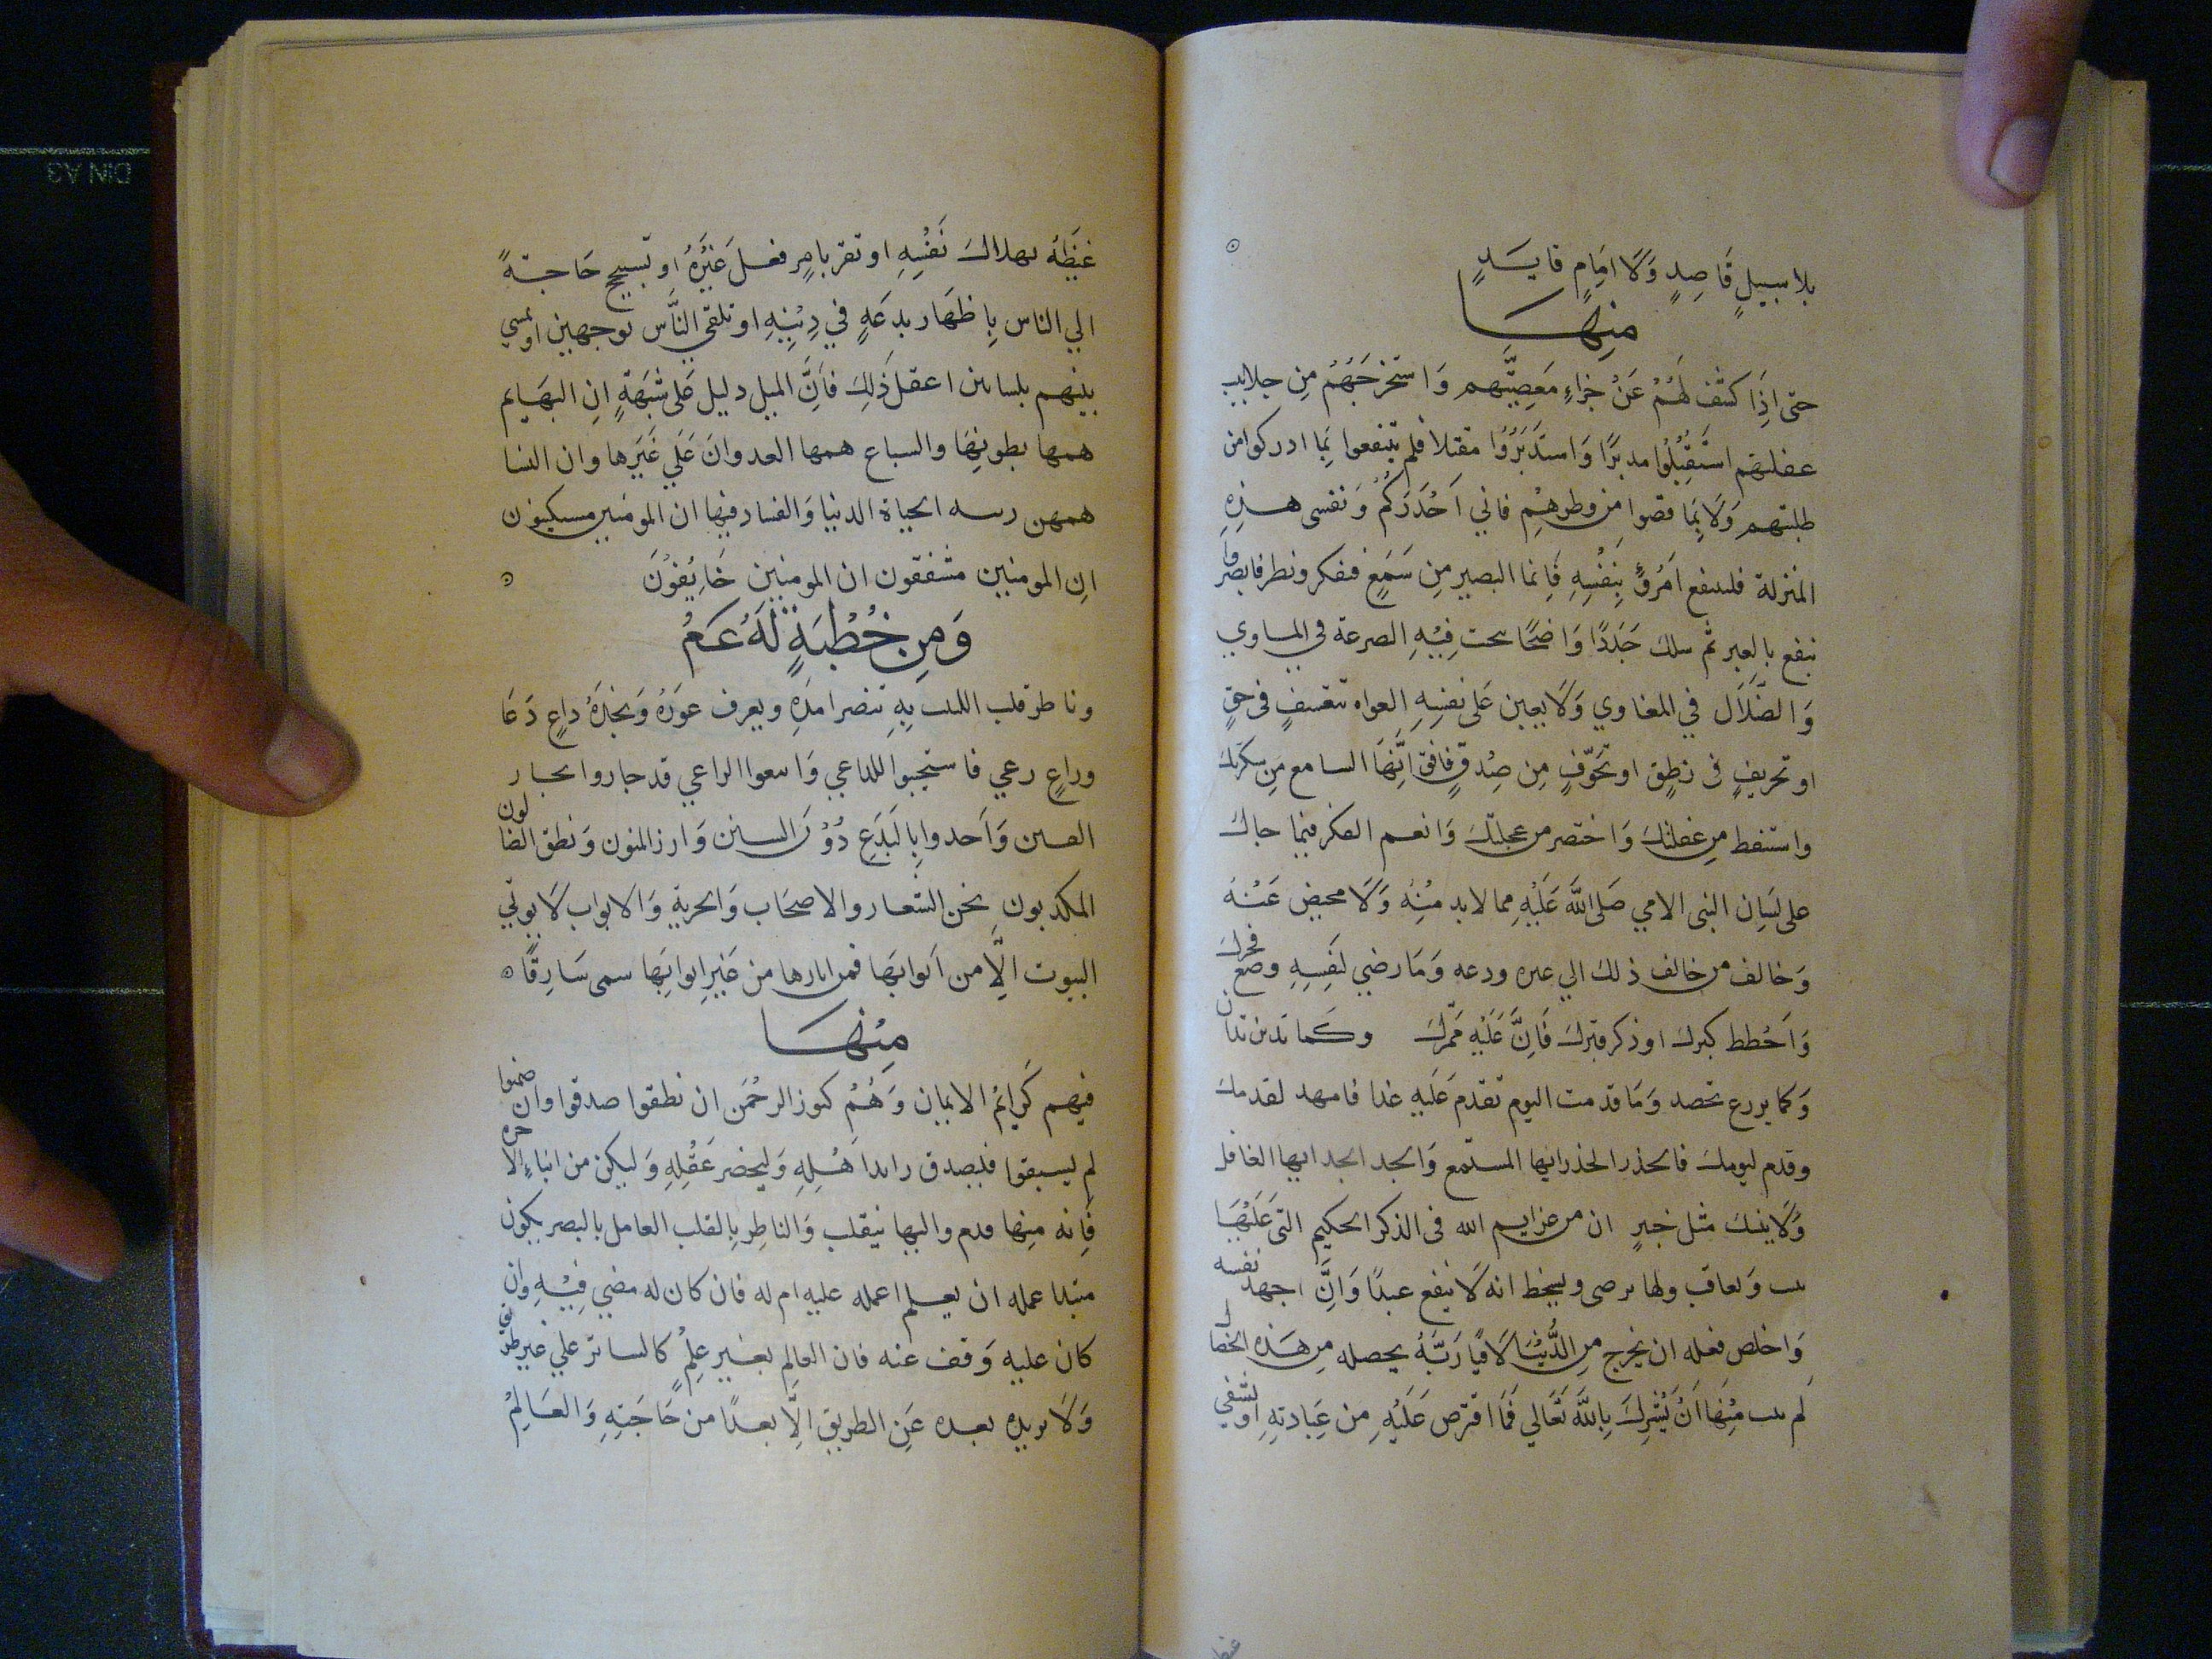 بلا سبيلٍ قَاصِدٍ وَلَا امَامٍ قايَدٍ
منها
حتى اذَا كشَفَ لَهُمْ عَنْ جَزاءِ مَعصِيَتهم وَاستخرجَهُمْ مِن جلابيب
غفلتهم استَقبَلُوا مدبرًا وَاستَدبَرُوا مقبلا فلم ينتفعوا بمَا ادركوا من
طلبتهم وَلَا بمَا قضوا من وطرهِمْ فاني اَحُذرَكُمُ وَنفسى هذِهِ
المنزلة فلينتفع امرُؤٌ بِنَفْسِهِ فَانما البصير مِن سَمَعٍ ففكر ونظر فابصر وا
نتفع بالعِبرِ ثم سلك جَدَدًا وَاضحًا يتجنب فِيْهِ الصرعة في المهاوي
وَالضَّلَالَ في المغاوي وَلَا يعين عَلى نفسِهِ الغواه بتعسفٍ فى حقٍ
او تحريفٍ فى نطقٍ او تخَوّفٍ مِن صِدقٍ فَافق اَيُّهَا السامع مِن سكرتك
واستيقظ مِن غفلتك وَاختصر من عجلتك وَانعم الفكر فيما جاك
على لسَانِ النبى الامي صَلى اللَّه عَلَيْهِ مما لابد مِنْهُ وَلَا محيص عَنْهُ
وَخالف من خالف ذلك الي غيره ودعه وَمَا رضي لنَفِسِهِ وضع فخرك
وَاحْطط كبرك اوذكر قبرك فَانَّ عَلَيْهِ مَمّرك وكما تدين تدان
وَكما يزرع تحصد وَمَا قدمت اليوم تقدم عَلَيهِ غدا فامهد لقدمك
وقدم ليومك فالحذر الحذر ايها المستمع وَالجد الجد ايها الغافل
وَلَا ينبئك مثل خبيرٍ ان من عزايم الله فى الذكر الحكيم التى عَلَيْهَا
يثيب وَيعاقب ولها يرضى ويسخط انه لَا ينفع عبدًا وَاِنَّ اجهد نفسه
وَاخلص فعله ان يخرج مِن الدُّنْيَا لَاقيًا رَبَّهُ بحصله مِن هَذِه الخصال
لم يتب مِنْهَا اَنْ يُشرِكَ بِاللَّه تَعَالي فمَا افترض عَلَيْهِ من عِبَادتهِ اَو يشفي
غيظَهُ بهلاك نَفْسِهِ او تقر بامرٍ فعل غيُرهُ او تسييح حَاجَةً
الي الناس بِاظهَار بدعَهٍ في دِيْنِهِ او تلقي النَّاس بوجهين او يمسي
بينهم بلسانين اعقل ذَلِكَ فاِنَّ المبل دليل عَلى شبَهةٍ انِ البهَايم
همها بطونِهَا والسباع همها العدوانَ عَلَي غَيرِها وان النسا
همهن زينه الحياة الدنيا وَالفساد فيها ان المومنين مسكينون
انِ المومنين مشفقون ان المومنين خَايفوْنَ
وَمِنِ خُطْبَةٍ لَهُ عَمُ
وناظر قلب اللبيب بِهِ تنصر امَدَهِ ويعرف غورَهُ وَنجدَهُ داعٍ دَعَا
وراعٍ رعي فاستجيبوا للداعي وَاتبعوا الراعي قد خاروا بحار
الفتن وَاَخذوا بِالبَدَعِ دُوْنَ السنن وَارز المنون وَنطق الضالون
المكذبون نحن الشعار والاصحَاب وَالخزية وَالابواب لَا يوتي
البيوت اِلَّا من اَبوابهَا فمن اتاها من غَيرِ ابوابِهَا سمى سَارِقًا
مِنها
فيهم كَرايمُ الايمان وَهُمُ كنوز الرحْمَن ان نطقوا صدقوا وان صمتوا
لم يسبقوا فليصدق رايدا هْلِهِ وَليحضر عَقْلِهِ وَليكن من ابناءِ الاخره
فَانه منِها قدم واليها ينقلب وَالناظِر بِالقلب العامل بالبصر يكون
مبتدا عمله ان يعلم اعمله عليه ام له فان كان له مضي فِيْهِ وان
كان عليه وَقف عنه فان العَالِم بغير علمٍ كالساير علي غير طريق
وَلَا يزيده بعده عَنِ الطريق اِلَّا بعدًا من حَاجَتهِ وَالعَالِمُ